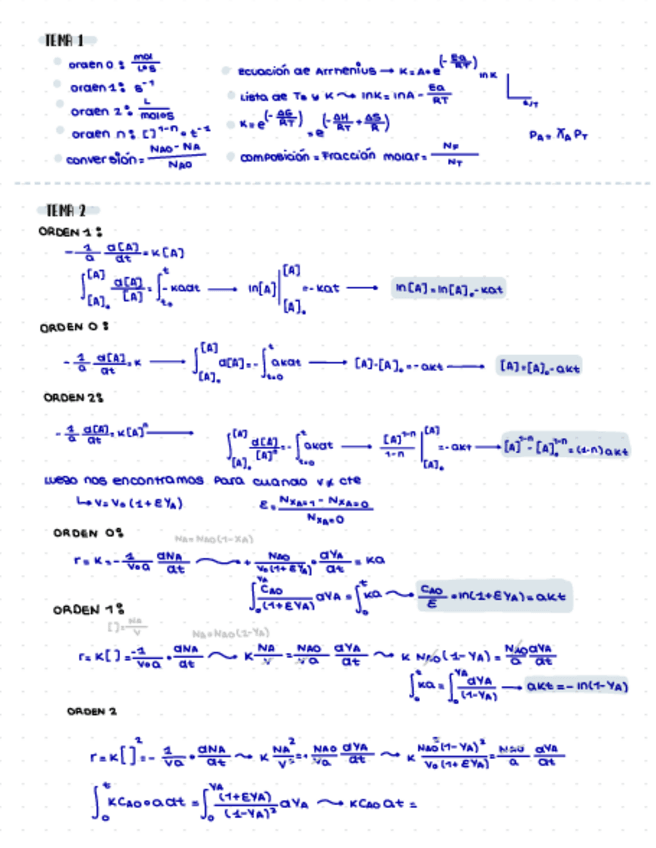 TEMA 1
orden 0: mol/L·s
orden 1: s⁻¹
orden 2: L/mol·s
orden n: []¹⁻ⁿ · t⁻¹
conversión = (NA0 - NA)/NA0
ecuación de Arrhenius → K = A·e^(-Ea/RT)
Lista de Ts y K ⇝ lnK = lnA - Ea/RT
lnK
K = e^(-ΔG/RT) = e^(-ΔH/RT + ΔS/R)
PA = XA PT
composición = Fracción molar = /NT
TEMA 2
ORDEN 1:
-1/a d[A]/dt = K[A]
∫[A]₀^[A] d[A]/[A] = ∫t₀^t -Kadt → ln[A] |[A]₀^[A] = -Kat → ln[A] = ln[A]₀ - Kat
ORDEN 0:
-1/a d[A]/dt = K → ∫[A]₀^[A] d[A] = -∫t=0^t aKdt → [A]-[A]₀ = -aKt → [A] = [A]₀ - aKt
ORDEN 2:
-1/a d[A]/dt = K[A]ⁿ → ∫[A]₀^[A] d[A]/[A]ⁿ = -∫t=0^t aKdt → [A]¹⁻ⁿ/1-n |[A]₀^[A] = -aKt → [A]¹⁻ⁿ - [A]₀¹⁻ⁿ = (1-n)aKt
Luego nos encontramos para cuando V ≠ cte
↳ V = V₀(1+εYA) ε = (NXA=1 - NXA=0)/NXA=0
ORDEN 0:
NA = NA0(1-XA)
r = K = -1/V₀a dNA/dt ⇝ + NA0/V₀(1+εYA) · dYA/dt = Ka
∫₀^YA CA0/(1+εYA) dYA = ∫₀^t Ka ⇝ CA0/ε · ln(1+εYA) = aKt
ORDEN 1:
[] = NA/V
NA = NA0(1-YA)
r = K[] = -1/V₀a · dNA/dt ⇝ K NA/V = NA0/Va dYA/dt ⇝ K NA0(1-YA) = NA0/a dYA/dt
∫₀^t Ka = ∫₀^YA dYA/(1-YA) → aKt = -ln(1-YA)
ORDEN 2
r = K[]² = -1/Va · dNA/dt ⇝ K NA²/V² = + NA0/Va dYA/dt ⇝ K NA0²(1-YA)²/V₀(1+εYA) = NA0/a dYA/dt
∫₀^t KCA0·adt = ∫₀^YA (1+εYA)/(1-YA)² dYA ⇝ KCA0at =